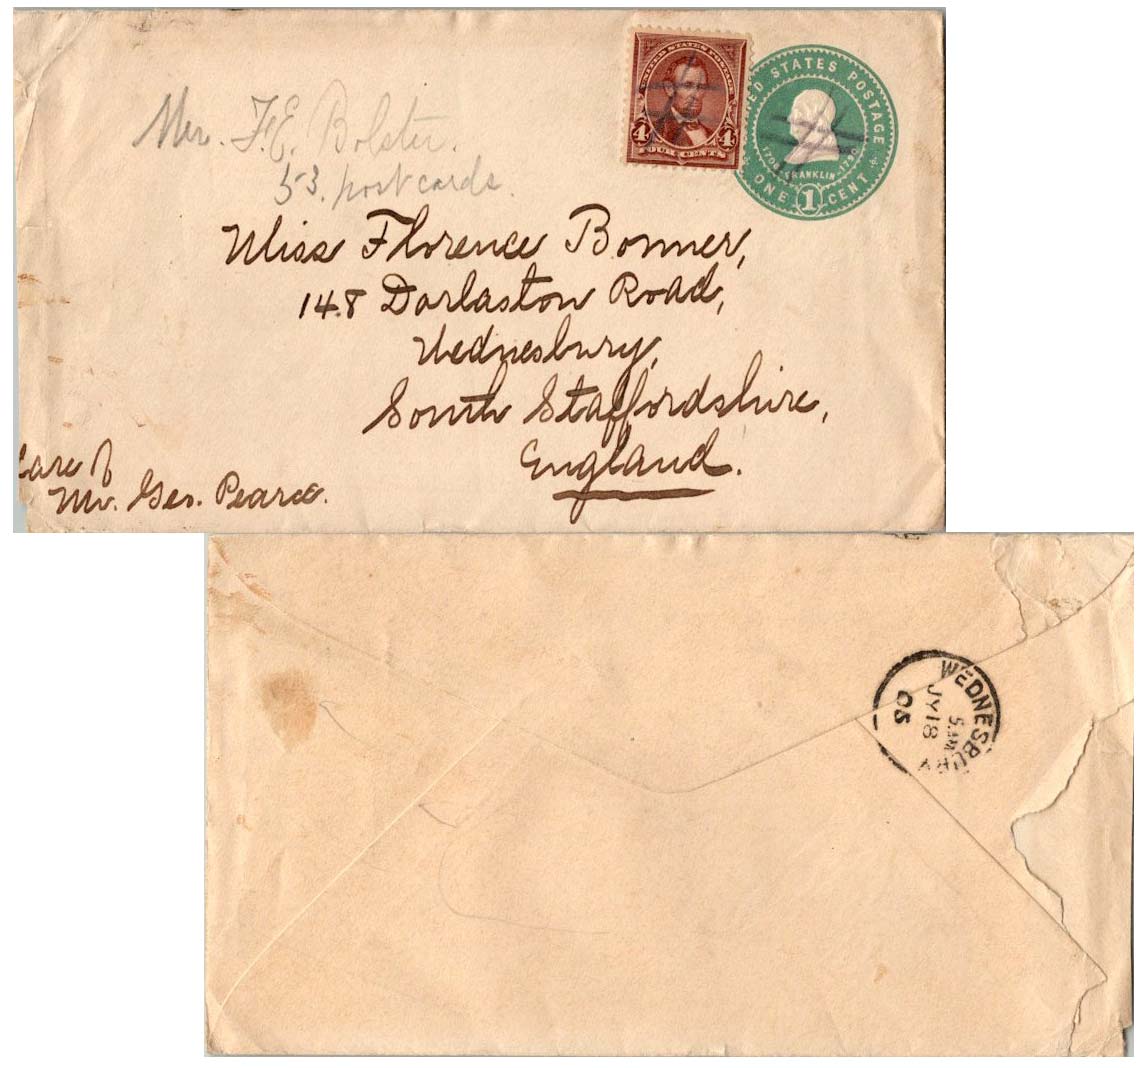 Mrs. F.E. Bolster.
53. postcards.
UNITED STATES POSTAGE
4 4
FOUR CENTS
UNITED STATES POSTAGE
1706 FRANKLIN 1790
ONE 1 CENT
Miss Florence Bonner,
148 Darlaston Road,
Wednesbury,
South Staffordshire,
England.
Care of
Mr. Geo. Pearce.
WEDNESBURY
5. AM
JY 18
05